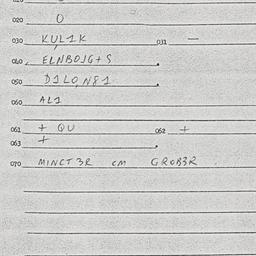 020 O
030 KUL1K 031 —
040 ELNBOJG+S
050 D1LON81
060 AL1
061 + QU 062 +
063 +
070 MINCT3R CM GROB3R